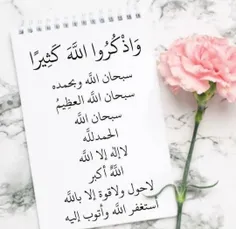 وَاذْكُرُوا اللَّهَ كَثِيرًا
سبحان الله وبحمده
سبحان الله العظيمُ
سبحان الله
الحمدللَّه
لاإله إلا اللَّه
اللَّهُ أكبر
لاحول ولاقوة إلا بالله
أستغفر الله وأتوب إليه